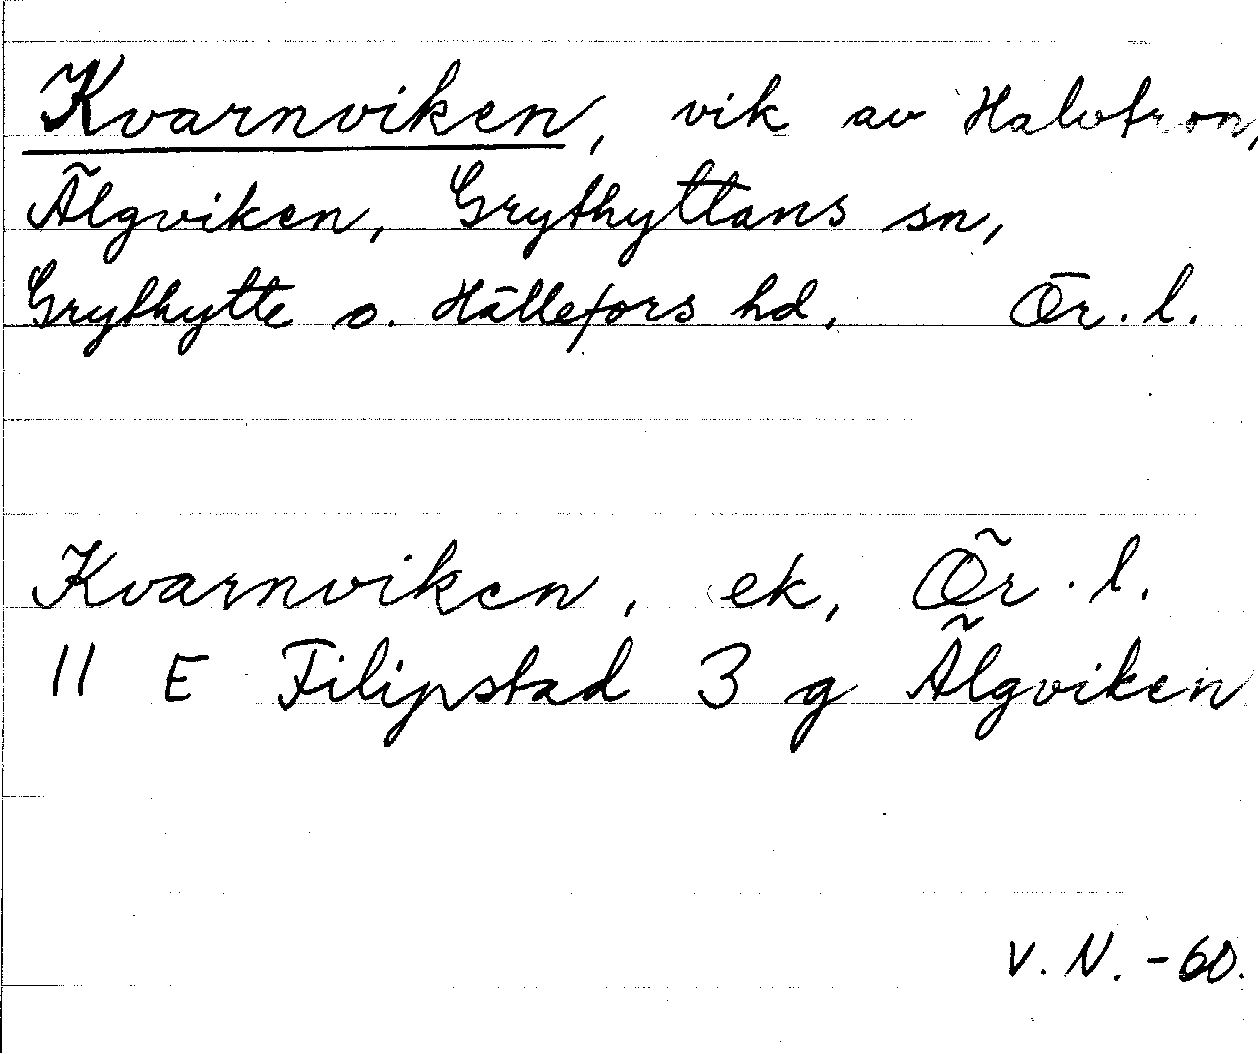 Kvarnviken, vik av Halvtron,
Älgviken, Grythyttans sn,
Grythytte o. Hällefors hd, Ör. l.
Kvarnviken, ek, Ör. l.
11 E Filipstad 3 g Älgviken
V. N. -60.